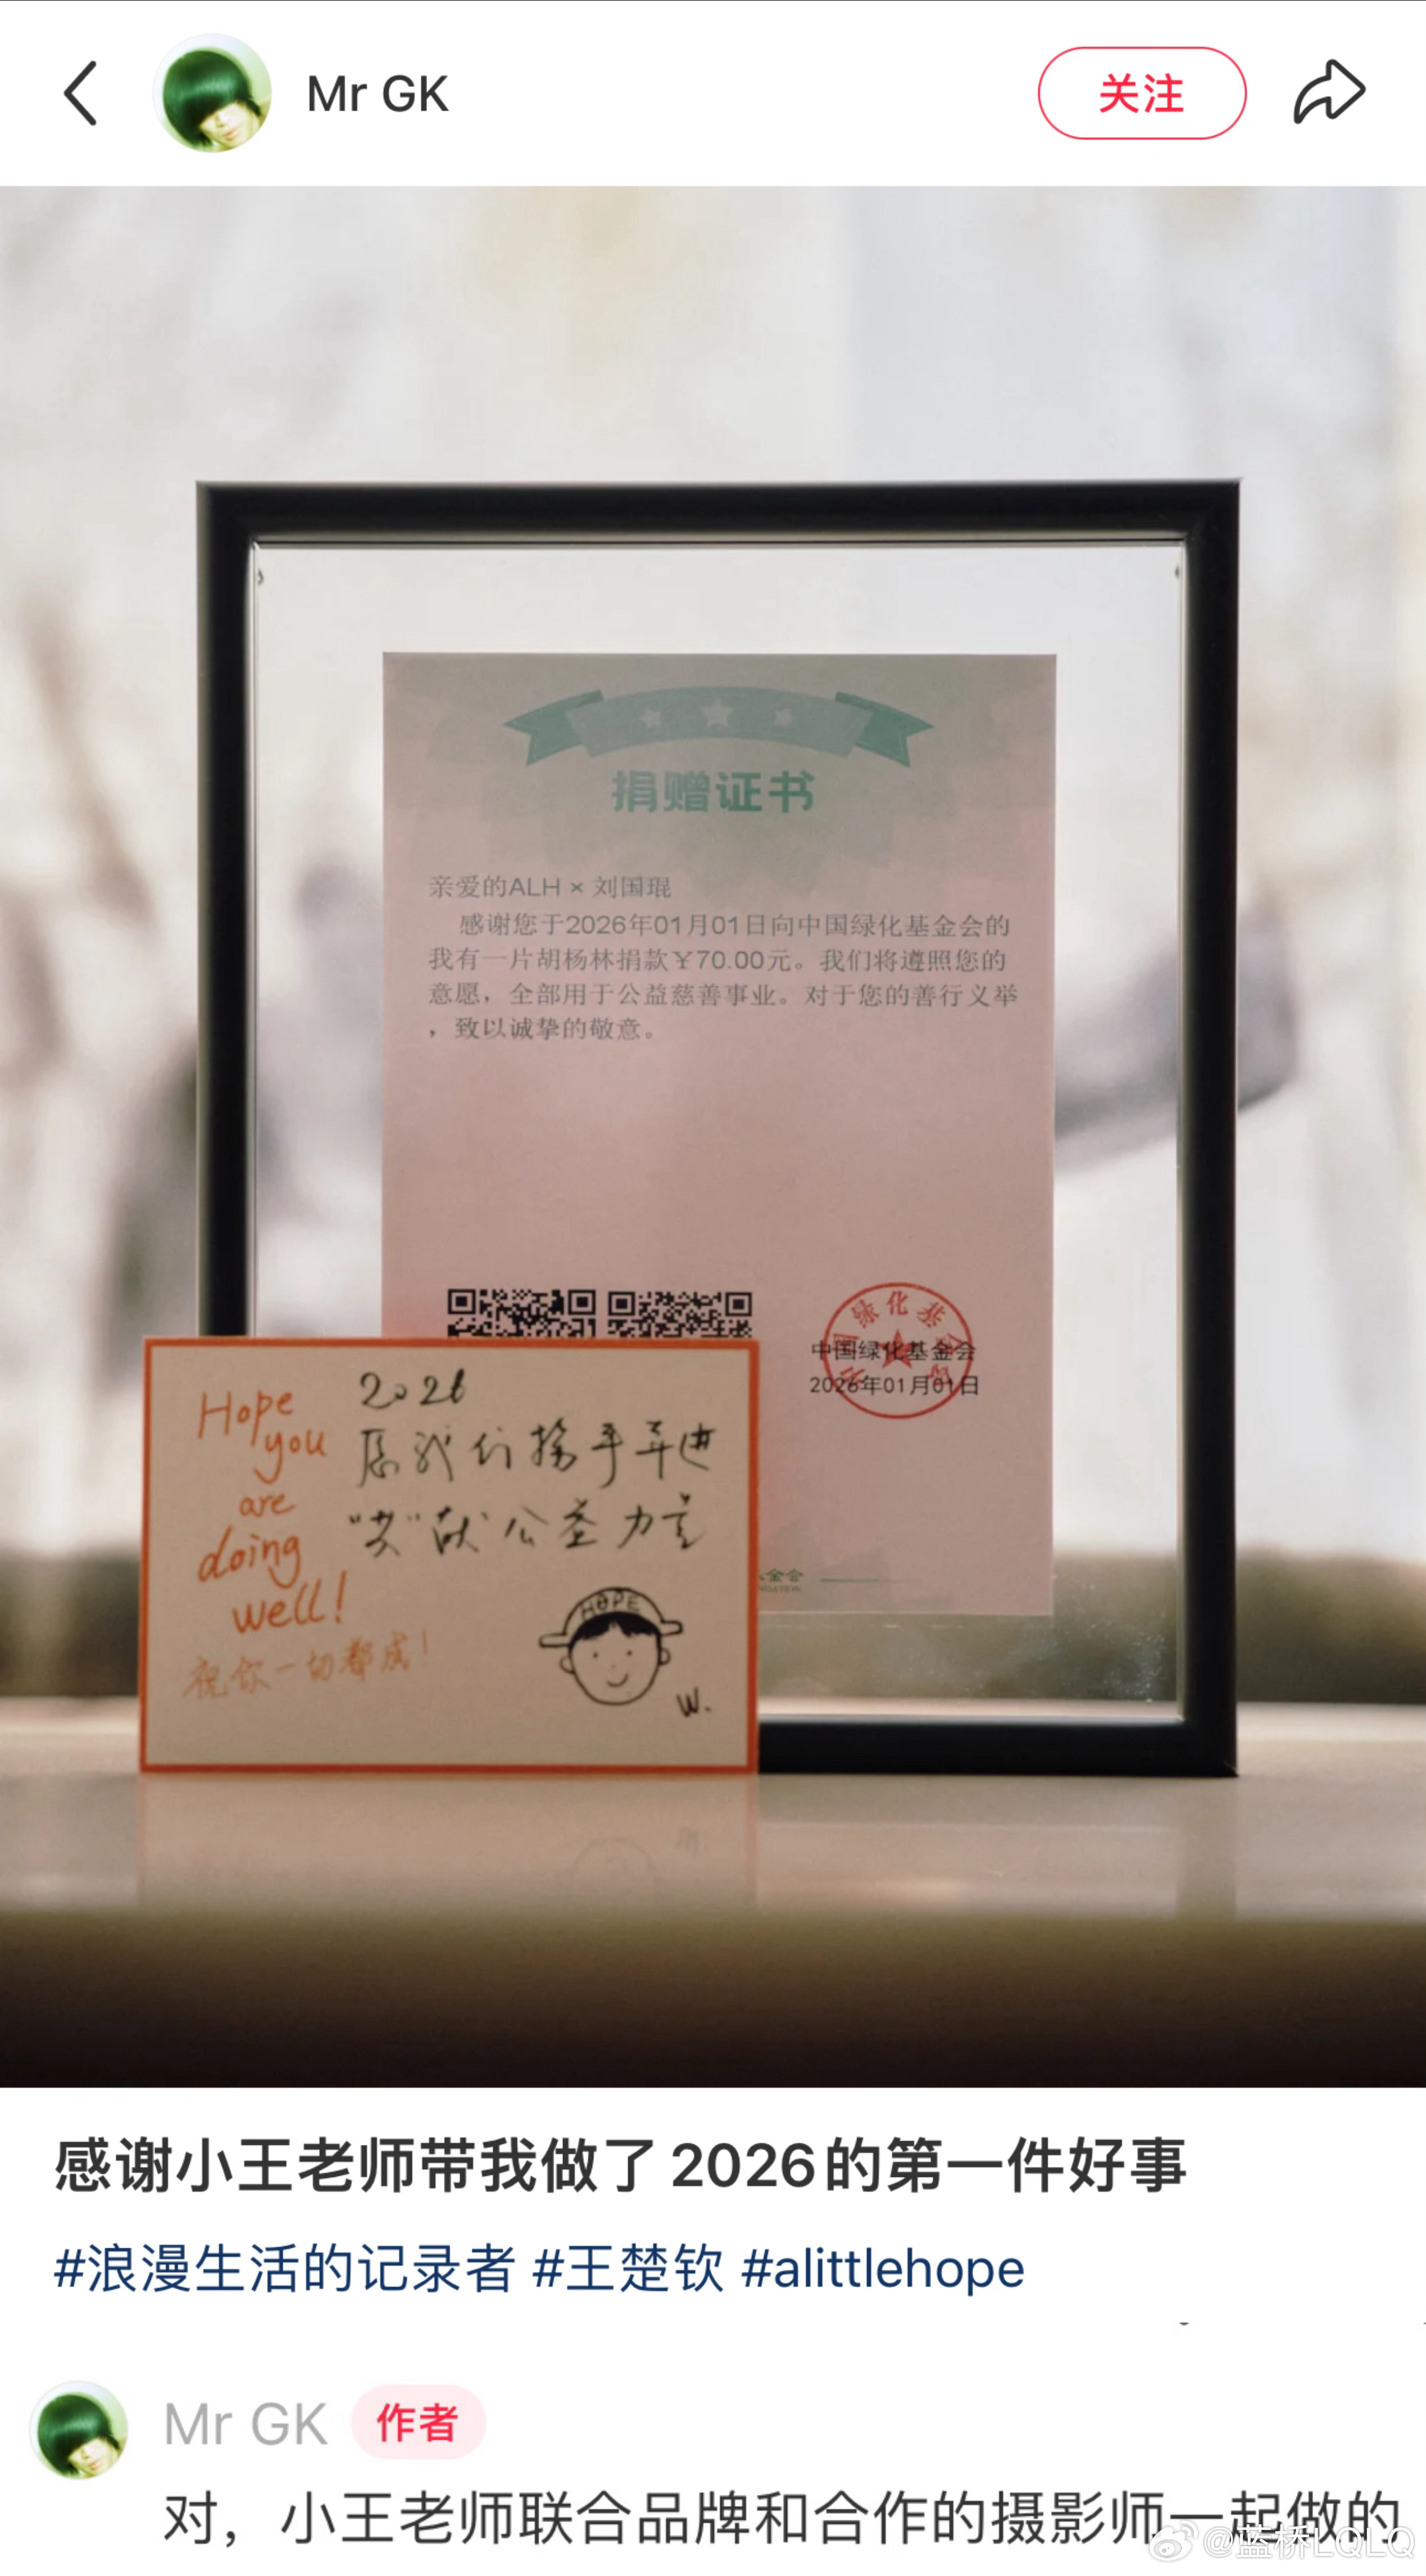 Mr GK
关注
捐赠证书
亲爱的ALH × 刘国琨
感谢您于2026年01月01日向中国绿化基金会的
我有一片胡杨林捐款¥70.00元。我们将遵照您的
意愿，全部用于公益慈善事业。对于您的善行义举
，致以诚挚的敬意。
中国绿化基金会
2026年01月01日
金会
Hope
you
are
doing
well!
祝你一切都成!
2026
愿我们携手并进
“共”献公益力量
HOPE
W.
感谢小王老师带我做了2026的第一件好事
#浪漫生活的记录者 #王楚钦 #alittlehope
Mr GK 作者
对，小王老师联合品牌和合作的摄影师一起做的
@蓝桥LQLQ